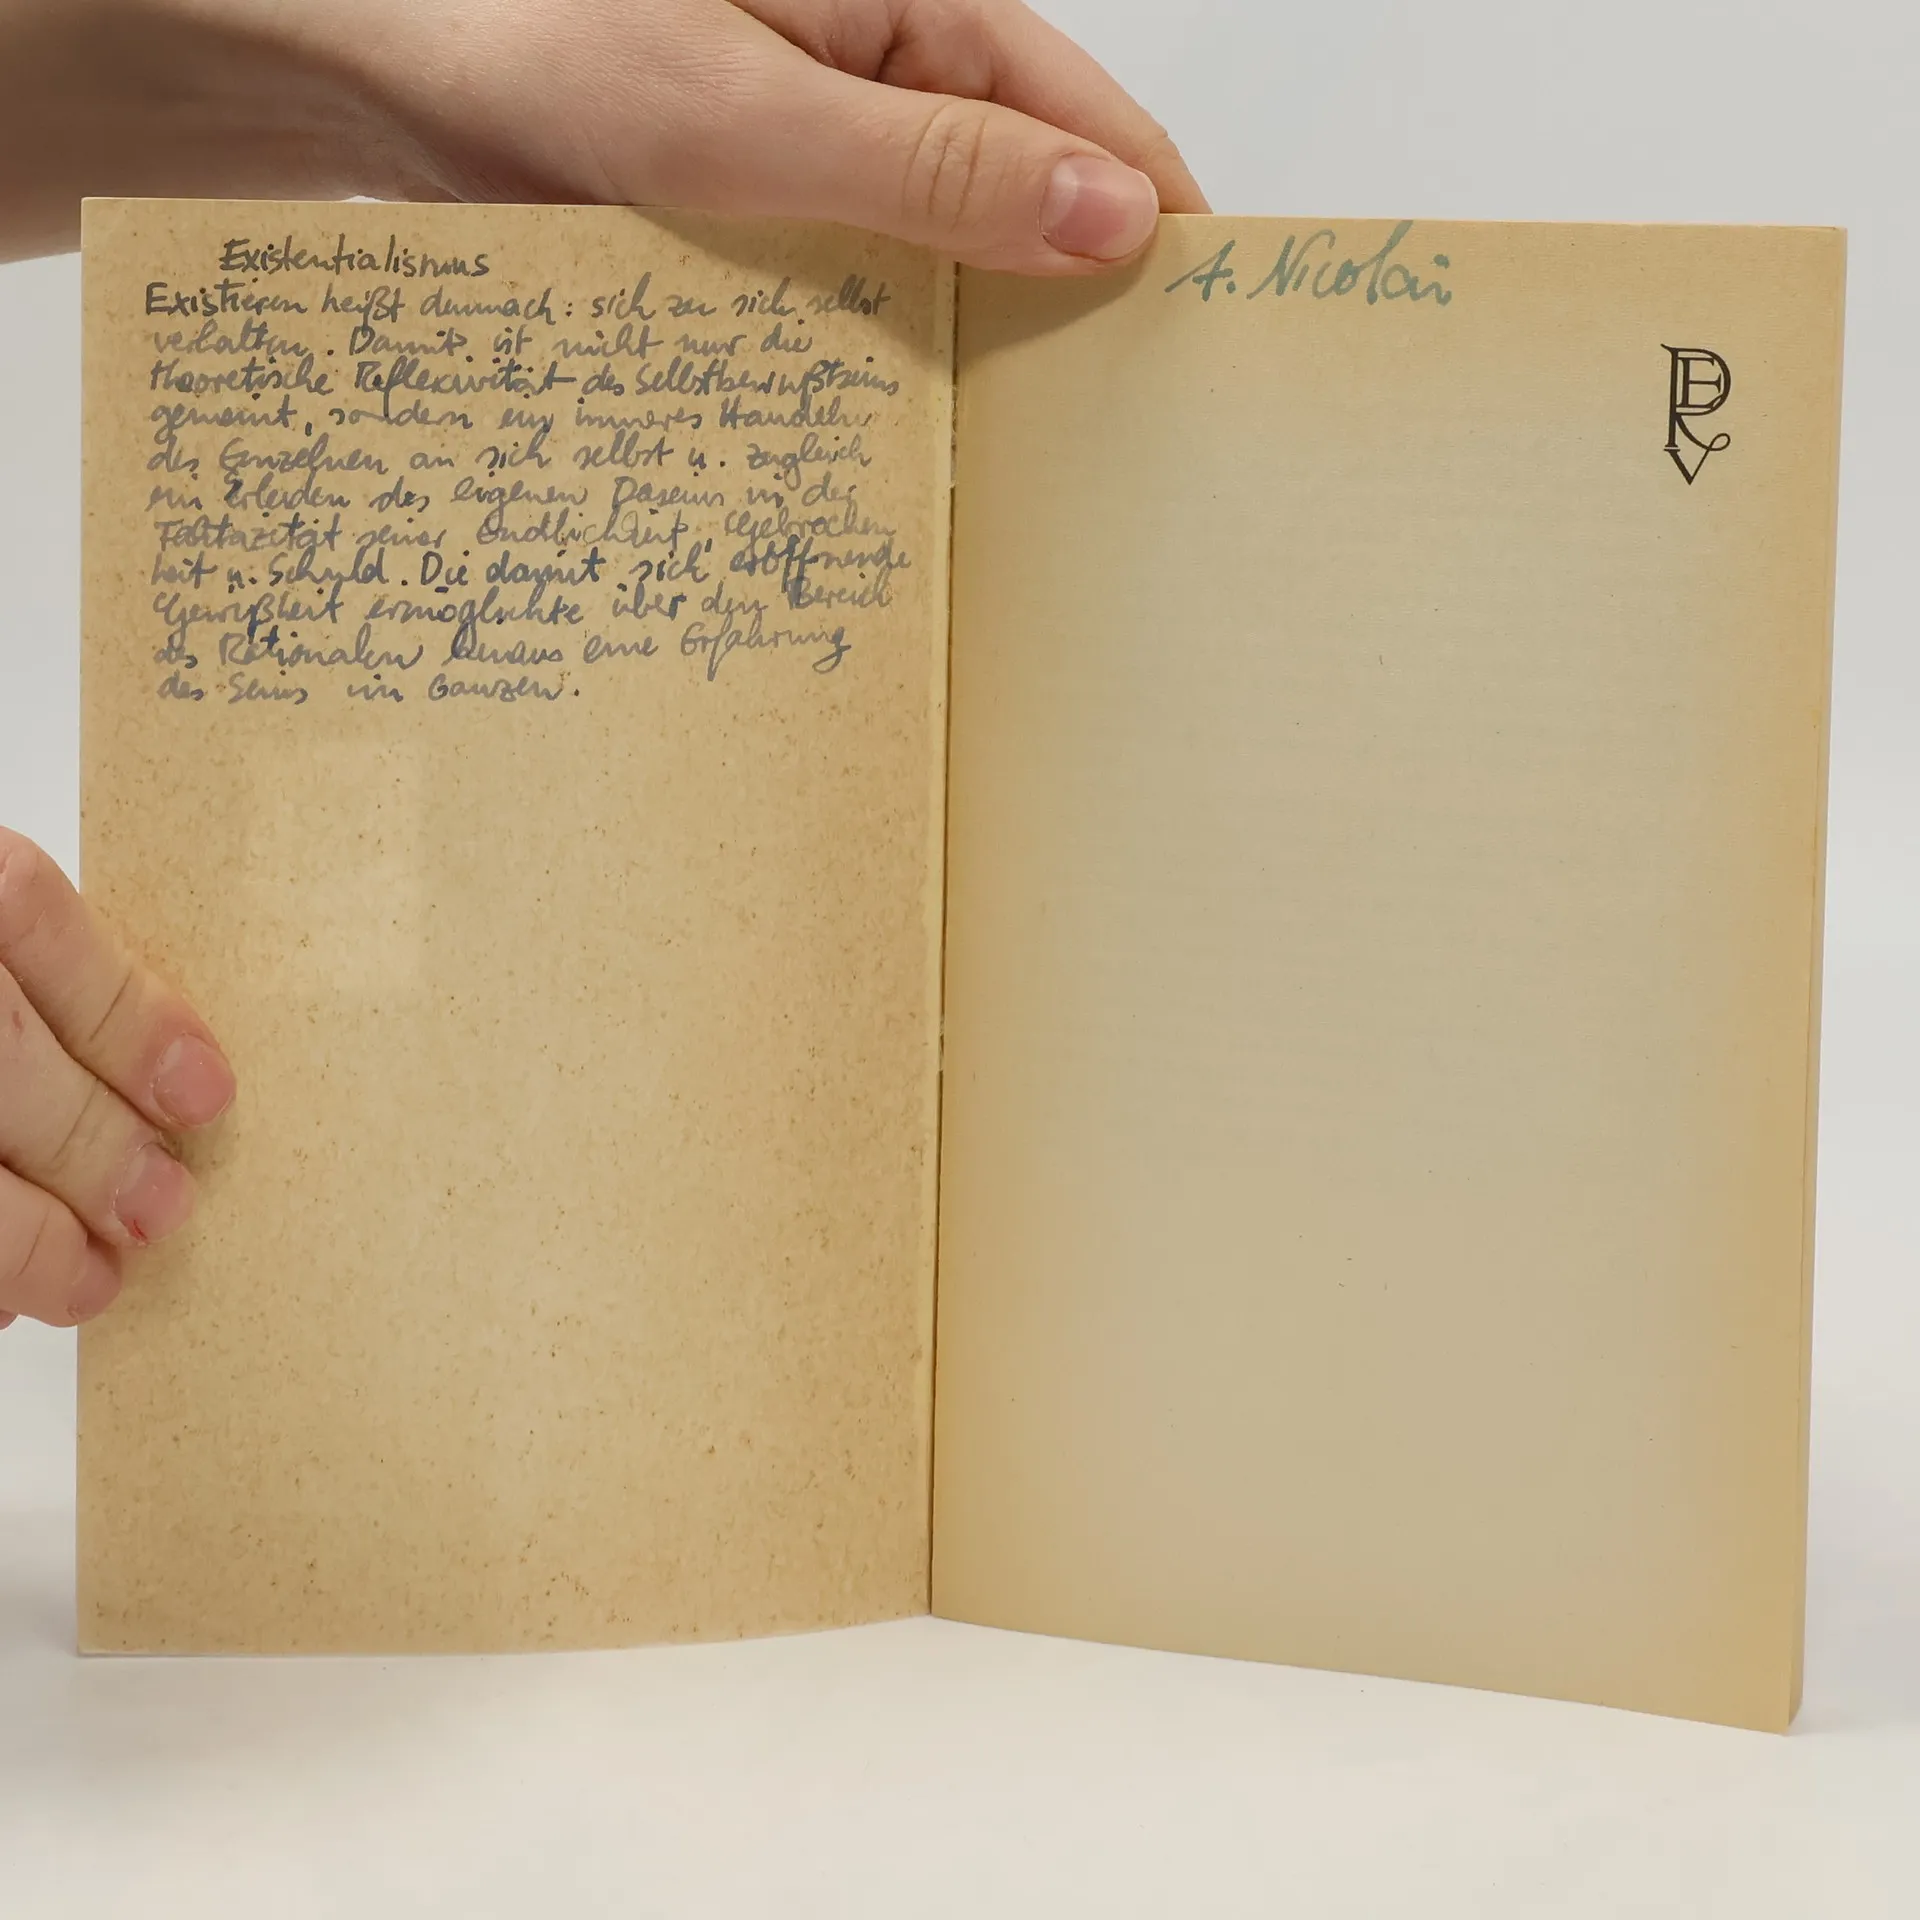 Existentialismus
Existieren heißt demnach: sich zu sich selbst
verhalten. Damit ist nicht nur die
theoretische Reflexivität des Selbstbewußtseins
gemeint, sondern ein inneres Handeln
des Einzelnen an sich selbst u. zugleich
ein Erleiden des eigenen Daseins in der
Faktizität seiner Endlichkeit, Gebrochen
heit u. Schuld. Die damit sich eröffnende
Gewißheit ermöglichte über den Bereich
des Rationalen hinaus eine Erfahrung
des Seins im Ganzen.
A. Nicolai